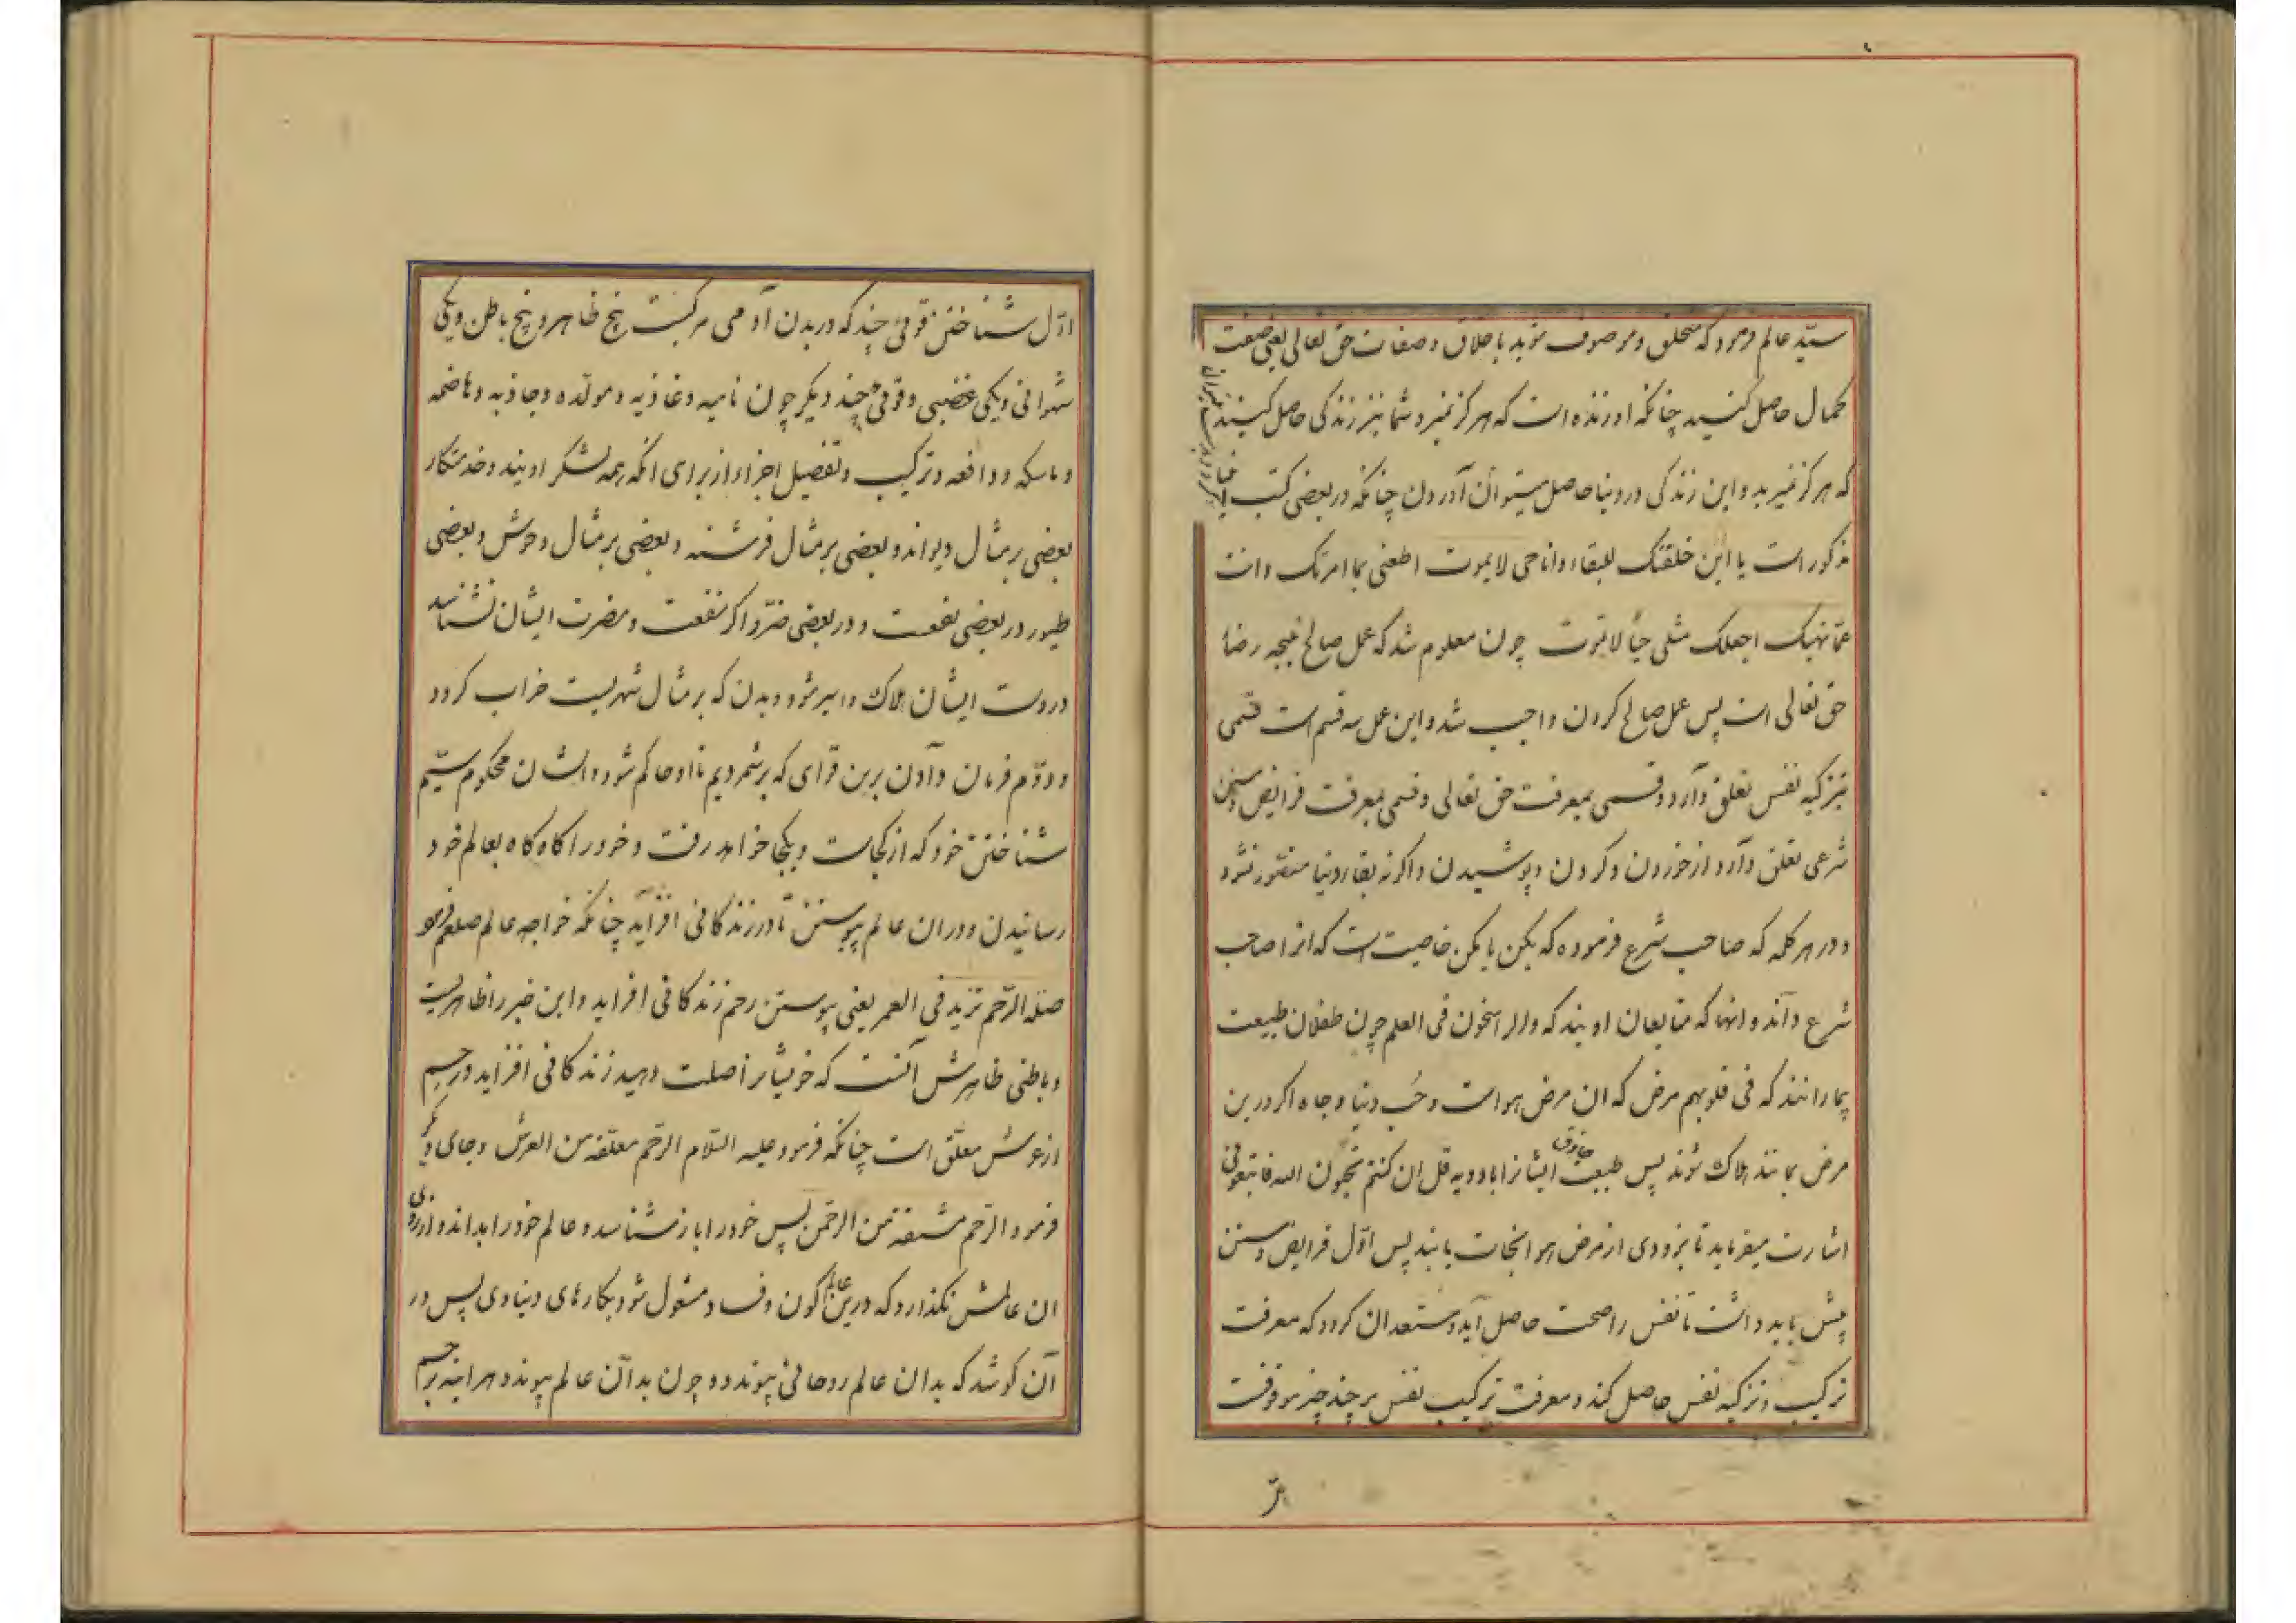 سیّد عالم فرمود که متخلق و موصوف شوید باخلاق و صفات حق تعالی یعنی صفت
کمال حاصل کنید چنانکه او زنده است که هرگز نمیرد شما نیز زندگی حاصل کنید
که هرگز نمیرید و این زندگی در دنیا حاصل میتوان آوردن چنانکه در بعضی کتب
مذکور است یا ابن خلقتک للبقاء و انا حی لایموت اطعنی بما امرتک و انت
عمّا نهیتک اجعلک مثلی حیّاً لاتموت چون معلوم شد که عمل صالح نتیجه رضاء
حق تعالی است پس عمل صالح کردن واجب شد و این عمل سه قسم است قسمی
بتزکیه نفس تعلق دارد و قسمی بمعرفت حق تعالی و قسمی بمعرفت فرایض و سنن
شرعی تعلق دارد از خوردن و کردن و پوشیدن و اگرنه بقاء دنیا متصور نشود
و در هر کلمه که صاحب شرع فرموده که بکن یا مکن خاصیت است که انرا صاحب
شرع داند و انها که متابعان اویند که والراسخون فی العلم چون طفلان طبیعت
بیمارانند که فی قلوبهم مرض که ان مرض هواست و حُب دنیا و جاه اگر درین
مرض بمانند هلاک شوند پس طبیب حاذق ایشانرا بادویه قل ان کنتم تحبون الله فاتبعونی
اشارت میفرماید تا بزودی از مرض هوا نجات یابند پس اوّل فرایض و سنن
پیش باید داشت تا نفس را صحت حاصل آید و مستعد ان گردد که معرفت
ترکیب و تزکیه نفس حاصل کند و معرفت ترکیب نفس بر چند چیز موقوفست
اوّل شناختن قوتی چند که در بدن آدمی مرکبست پنج ظاهر و پنج باطن و یکی
شهوانی و یکی غضبی و قوتی چند دیگر چون نامیه و غاذیه و مولّده و جاذبه و هاضمه
و ماسکه و دافعه و ترکیب و تفصیل اجزاء از برای انکه همه لشکر اویند و خدمتکار
بعضی بر مثال دیواند و بعضی بر مثال فرشته و بعضی بر مثال وحوش و بعضی
طیور در بعضی نفعست و در بعضی ضرّ و اگر منفعت و مضرت ایشان نشناسد
در دست ایشان هلاک و اسیر شود و بدن که بر مثال شهریست خراب گردد
و دوّم فرمان دادن برین قوای که برشمردیم تا او حاکم شود و ایشان محکوم سیّم
شناختن خود که از کجاست و بکجا خواهد رفت و خود را گاه گاه بعالم خود
رسانیدن و دران عالم پیوستن تا در زندگانی افزاید چنانکه خواجه عالم صلعم فرمود
صلة الرّحم تزید فی العمر یعنی پیوستن رحم زندگانی افزاید و این خبر را ظاهریست
و باطنی ظاهرش آنست که خویشانرا صلت دهید زندگانی افزاید و رحم
از عرش معلّق است چنانکه فرمود علیه السّلام الرّحم معلّقه من العرش و جای دیگر
فرمود الرّحم مشتقة من الرّحمن پس خود را باز شناسد و عالم خود را بداند و ارزوی
ان عالمش نگذارد که درین عالم کون و فساد مشغول شود بکارهای دنیاوی پس در
آن کوشد که بدان عالم روحانی پیوندد و چون بدان عالم پیوندد هراینه رحم